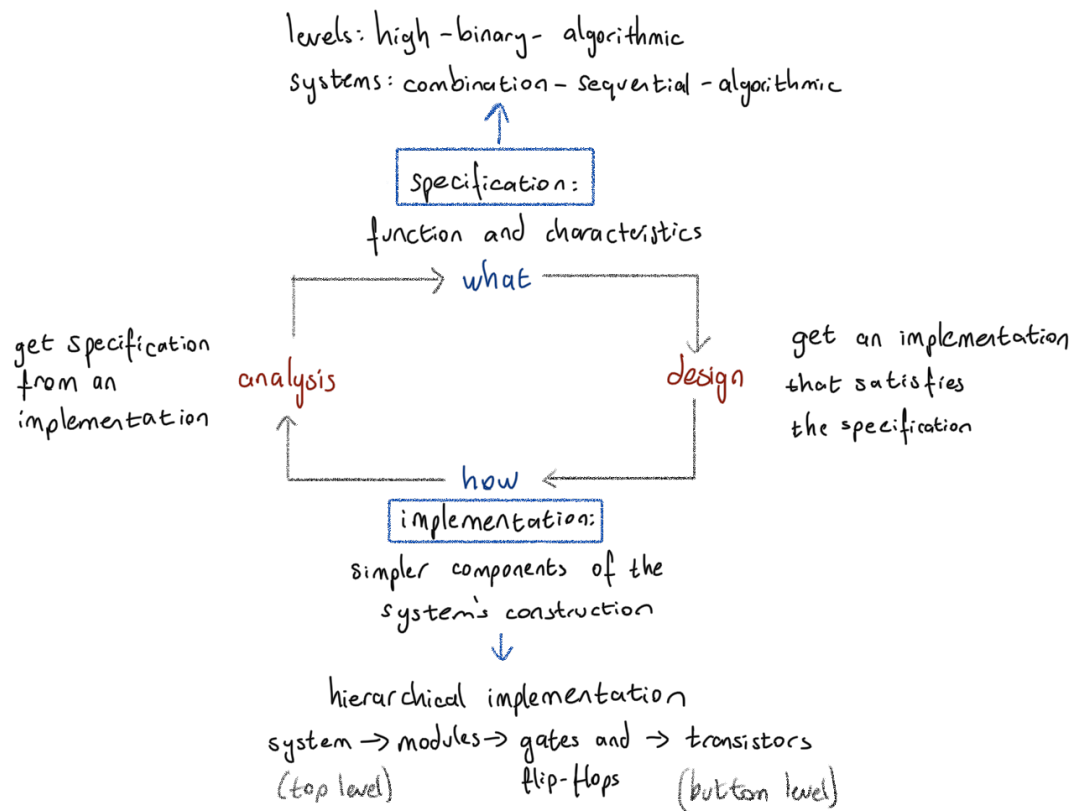 levels: high - binary - algorithmic
systems: combination - sequential - algorithmic
specification:
function and characteristics
what
get specification
from an
implementation
analysis
design
get an implementation
that satisfies
the specification
how
implementation:
simpler components of the
system's construction
hierarchical implementation
system → modules → gates and → transistors
flip-flops
(top level)
(buttom level)